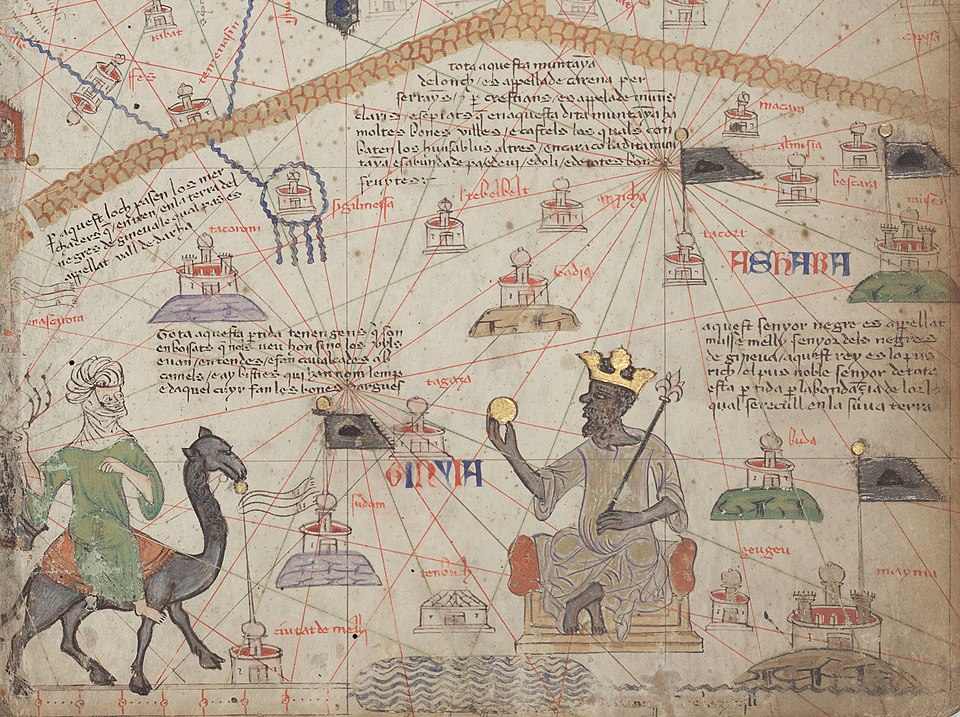 ribat
fes
tirimcnsin
tota aquesta muntaya
de lonch / es appellade carena per
serrayns / ⁊ p crestians / es apelade muntis
claris / e sepiats q en aquesta dita muntaya ha
moltes bones villes / e castels los quals con
baten los huns ab los altres / encara co la dita mun
taya es abunda de pa e de vi / e doli / e de totes bones
fruytes
macara
almesia
bescara
P aquest loch pasen los mer
chaders q entren en la terra del
negres de gineva lo qual pas es
appellat vall de darha
sigilmessa
tacorom
tebelbelt
tacort
ASHARA
Tota aquesta ptida tenen gens q son
enbossats q nols veu hom sino los uyls
e van / en tendes / e fan cavalcades ab
camels / e ay bisties qui han nom lemp
e daquel cuyr fan les bones dargues
aquest senyor negre es appellat
musse melly senyor dels negres
de gineva / aquest rey es lo pus
rich / el pus noble senyor de tota
esta ptida p labondançia de lor lo
qual se recull en la suua terra
tagaza
buda
GINYIA
sudam
tenbuch
geugeu
mayma
ciutat de melli